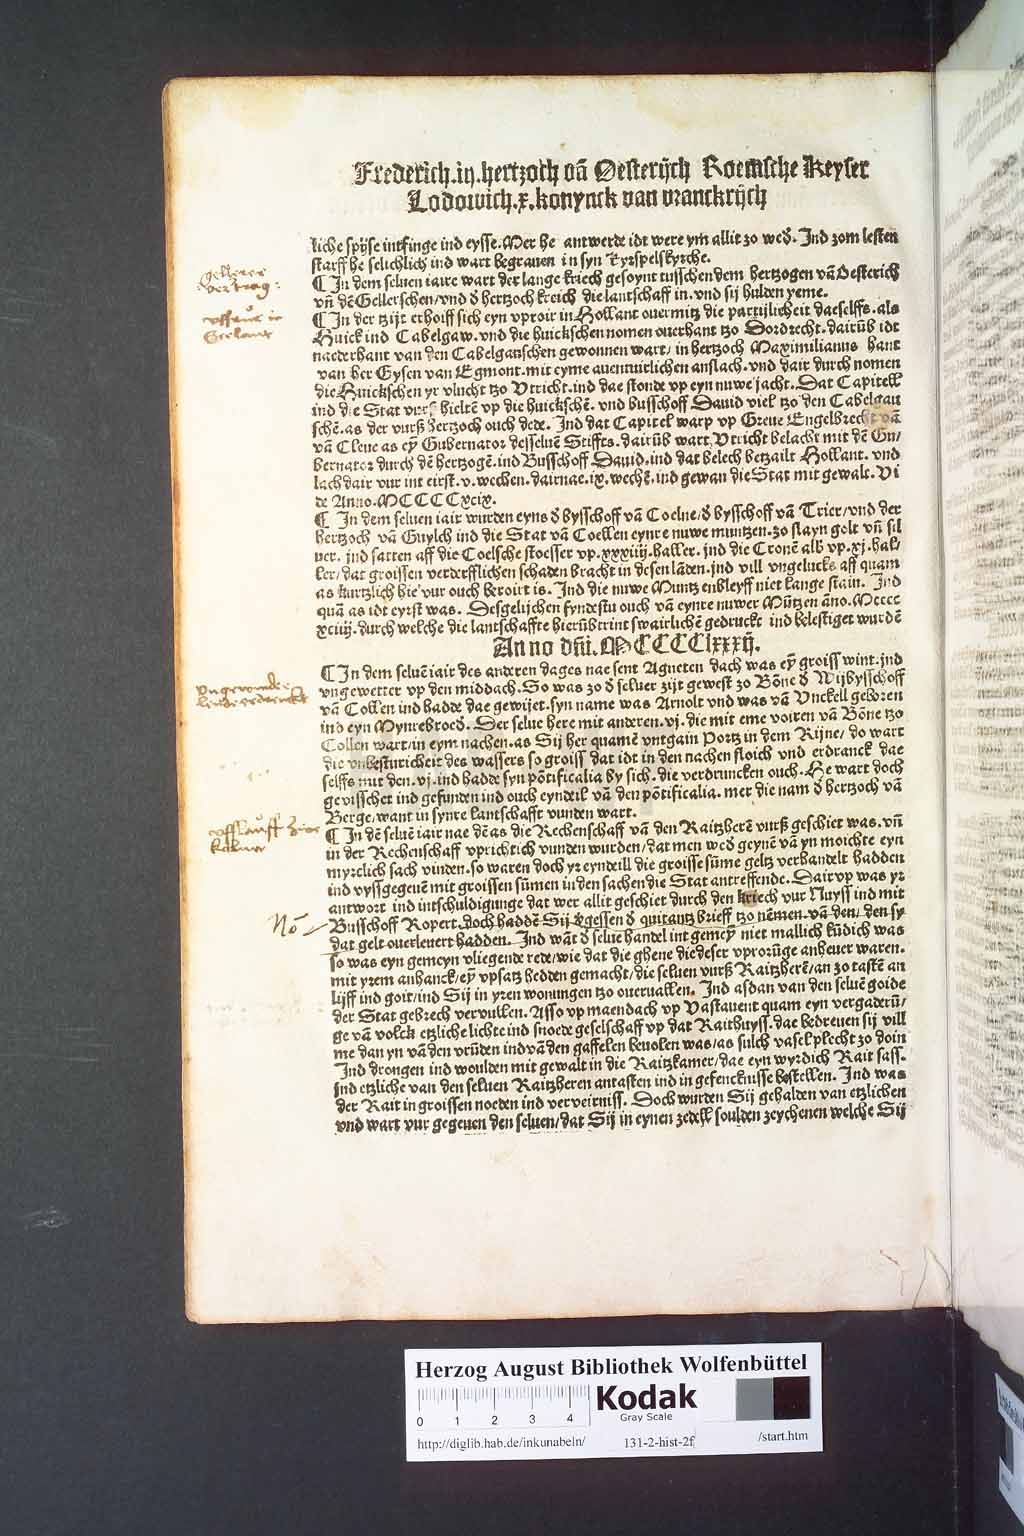 Frederich.iij.hertzoch vā Oesterijch Roemsche Keyser
Lodowich.x.konynck van vranckrijch
liche spijse intfinge ind eysse. Mer he antwerde idt were ym allit zo wed̄. Ind zom lesten
starff he selichlich ind wart begrauen in syn kyrspelskyrche.
¶ In dem seluen iaire wart der lange kriech gesoynt tusschen dem hertzogen vā Oesterich
vn̄ dē Gellerschen/vnd d̄ hertzoch kreich die lantschaff in. vnd sij hulden yeme.
¶ In der tzijt erhoiff sich eyn vproir in Hollant ouermitz die partijlicheit daeselffs. als
Huick ind Cabelgaw. vnd die huickschen nomen ouerhant tzo Dordrecht. dairūb idt
naederhant van den Cabelgauschen gewonnen wart/ in hertzoch Maximilianus hant
van her Eysen van Egmont. mit eyme auentuirlichen anslach. vnd dair durch nomen
die Huickschen yr vlucht tzo Vtricht. ind dae stonde vp eyn nuwe jacht. Dat Capitell
ind die Stat vurß hieltē vp die huickschē. vnd busschoff Dauid viel tzo den Cabelgau
schē. as der vurß hertzoch ouch dede. Ind dat Capitel warp vp Greue Engelbrecht vā
vā Cleue as eȳ Gubernator desseluē Stiffts. dairūb wart Vtricht belacht mit dē Gu/
bernator durch dē hertzogē. ind Busschoff Dauid. ind dat belech betzailt Hollant. vnd
lach dair vur int eirst. v. wechen. dairnae. ix. wechē. ind gewan die Stat mit gewalt. Vi
de Anno. MCCCCxcix.
¶ In dem seluen iair wurden eyns d̄ bysschoff vā Coelne/d̄ bysschoff vā Trier/vnd der
hertzoch vā Guylch ind die Stat vā Coellen eynre nuwe muntzen. zo slayn golt vn̄ sil
uer. jnd satten aff die Coelsche stoesser vp. xxxiiij. haller. jnd die Cronē alb vp. xj. hal/
ler/dat groissen verderfflichen schaden bracht in desen lāden. jnd vill vngelucks aff quam
as kurtzlich hie vur ouch beroirt is. Ind die nuwe Muntz enbleyff niet lange stain. Ind
quā as idt eyrst was. Desgelijchen fyndestu ouch vā eynre nuwer Mūtzen āno. Mcccc
xciiij. durch welche die lantschaffte hierūbtrint swairlichē gedruckt ind belestiget wurdē
Anno dn̄i. MCCCClxxxij.
¶ In dem seluē iair des anderen dages nae sent Agneten dach was eȳ groiss wint. jnd
vngewetter vp den middach. So was zo d̄ seluer zijt gewest zo Bōne d̄ Wijbysschoff
vā Collen ind hadde dae gewijet. syn name was Arnolt vnd was vā Vnckell geboren
ind eyn Mynrebroed̄. Der selue here mit anderen. vj. die mit eme voiren vā Bōne tzo
Collen wart/in eym nachen. as Sij her quamē vntgain Portz in dem Rijne/ do wart
die vnbesturicheit des wassers so groiss dat idt in den nachen floich vnd erdranck dae
selffs mit den. vj. ind hadde syn pōtificalia by sich. die verdruncken ouch. He wart doch
gevisschet ind gefunden ind ouch eyndeil vā den pōtificalia. mer die nam d̄ hertzoch vā
Berge/want in synre lantschafft vunden wart.
¶ In dē seluē iair nae dē as die Rechenschaff vā den Raitzherē vurß geschiet was. vn̄
in der Rechenschaff vprichtich vunden wurden/dat men wed̄ geynē vā yn moichte eyn
myrclich sach vinden. so waren doch yr eyndeill die groisse sūme geltz verhandelt hadden
ind vyssgegeuē mit groissen sūmen in den sachen die Stat antreffende. Dair vp was yr
antwort ind intschuldigunge dat wer allit geschiet durch den kriech vur Nuyss ind mit
Busschoff Ropert. doch haddē Sij v̄gessen d̄ quitantz brieff tzo nēmen. vā den/ den sy
dat gelt ouerleuert hadden. Ind wāt d̄ selue handel int gemeȳ niet mallich kūdich was
so was eyn gemeyn vliegende rede/wie dat die ghene die deser vprorūge anheuer waren.
mit yrem anhanck/eȳ vpsatz hedden gemacht/die seluen vurß Raitzherē/an zo tastē an
lijff ind goit/ind Sij in yren woningen tzo oueruallen. Ind asdan van den seluē goide
der Stat gebrech vervullen. Asso vp maendach vp Vastauent quam eyn vergaderū/
ge vā volck etzliche lichte ind snoede geselschaff vp dat Raithuyss. dae bedreuen sij vill
me dan yn vā den vrūden ind vā den gaffelen beuolen was/as sulch vasel plecht zo doin
Ind drongen ind woulden mit gewalt in die Raitzkamer/dae eyn wyrdich Rait sass.
jnd etzliche van den seluen Raitzheren antasten ind in gefencknisse bestellen. Ind was
der Rait in groissen noeden ind verveirniss. Doch wurden Sij gehalden van etzlichen
vnd wart vur gegeuen den seluen/dat Sij in eynen zedell soulden zeychenen welche Sij
gellerer
vertrag:
vffrur in
Seelant
vngewonder
vfflauff zw
Kolner
No
Herzog August Bibliothek Wolfenbüttel
0 1 2 3 4
Kodak
Gray Scale
http://diglib.hab.de/inkunabeln/ 131-2-hist-2f /start.htm